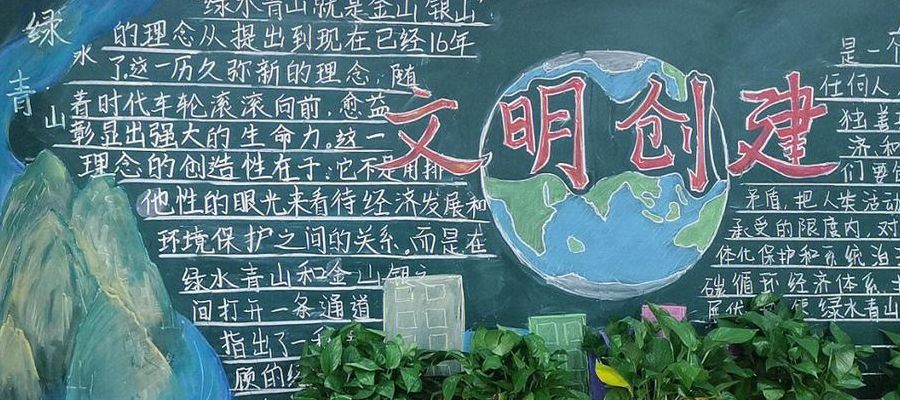 绿水青山
绿水青山就是金山银山
的理念从提出到现在已经16年
了,这一历久弥新的理念,随
着时代车轮滚滚向前,愈益
彰显出强大的生命力。这一
理念的创造性在于:它不是用排
他性的眼光来看待经济发展和
环境保护之间的关系,而是在
绿水青山和金山银
间打开一条通道
指出了一
顾的
文明创建
是一个
任何人
独善
济和
们要
矛盾,把人类活动
承受的限度内,对
体化保护和系统治
碳循环经济体系
绿水青山